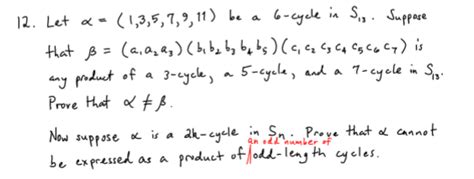 12. Let α = (1,3,5,7,9,11) be a 6-cycle in S₁₃. Suppose
that β = (a₁a₂a₃)(b₁b₂b₃b₄b₅)(c₁c₂c₃c₄c₅c₆c₇) is
any product of a 3-cycle, a 5-cycle, and a 7-cycle in S₁₃.
Prove that α ≠ β.
Now suppose α is a 2k-cycle in Sₙ. Prove that α cannot
an odd number of
be expressed as a product of odd-length cycles.